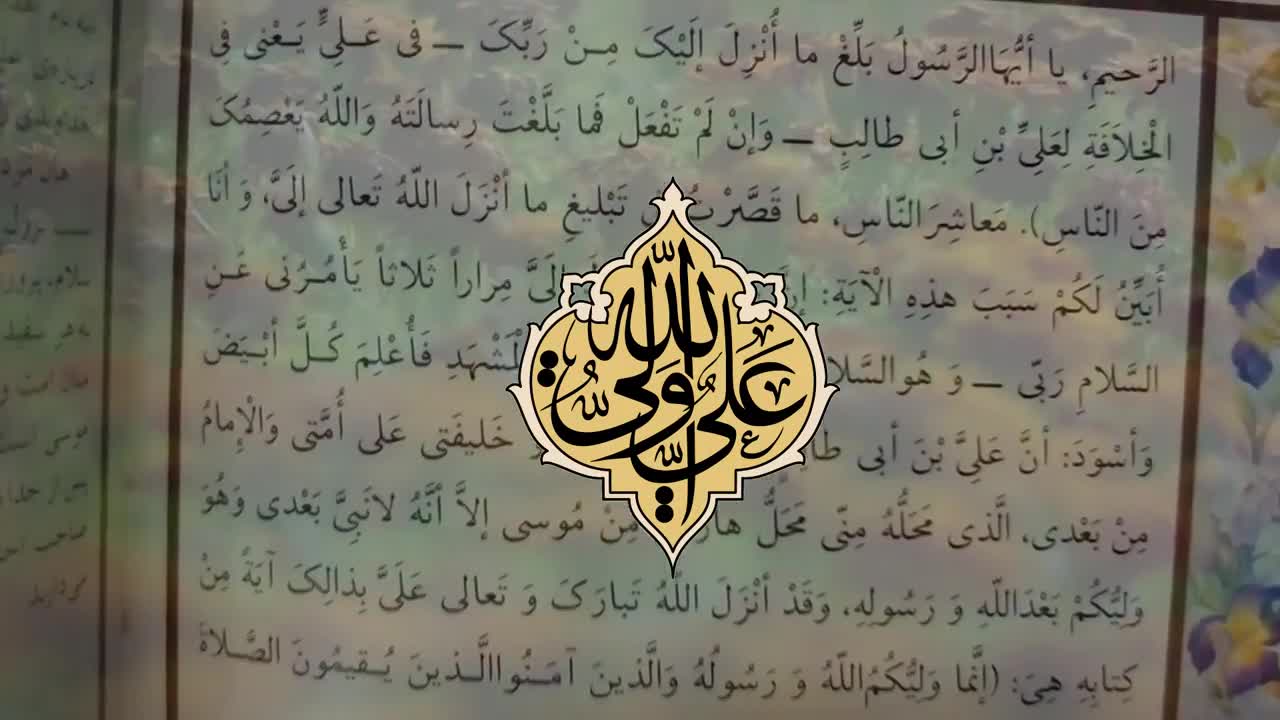 الرَّحیمِ، یا أیُّهَاالرَّسُولُ بَلِّغْ ما أُنْزِلَ إلَیْکَ مِـنْ رَبِّکَ ـ فی عَـلِیٍّ یَـعْنی فِی
الْخِلاَفَةِ لِعَلِیِّ بْنِ أبی طالِبٍ ـ وَإنْ لَمْ تَفْعَلْ فَما بَلَّغْتَ رِسالَتَهُ وَاللّهُ یَعْصِمُکَ
مِنَ النّاسِ). مَعاشِرَالنّاسِ، ما قَصَّرْتُ تَبْلیغِ ما أنْزَلَ اللّهُ تَعالی إلَیَّ، وَ أنَا
أُبَیِّنُ لَکُمْ سَبَبَ هذِهِ الْآیَةِ: إلَیَّ مِراراً ثَلاثاً یَأْمُرُنی عَـنِ
السَّلامِ رَبّی ـ وَ هُوالسَّلا الْمَشْهَدِ فَأُعْلِمَ کُـلَّ أبْـیَضَ
وَأسْوَدَ: أنَّ عَلِیَّ بْنَ أبی خَلیفَتی عَلی أُمَّتی وَالْإمامُ
مِنْ بَعْدی، الَّذی مَحَلُّهُ مِنّی مَحَلُّ مِنْ مُوسی إلاَّ أنَّهُ لانَبِیَّ بَعْدی وَهُوَ
وَلِیُّکُمْ بَعْدَاللّهِ وَ رَسُولِهِ، وَقَدْ أنْزَلَ اللّهُ تَبارَکَ وَ تَعالی عَلَیَّ بِذالِکَ آیَةً مِنْ
کِتابِهِ هِیَ: (إنَّما وَلِیُّکُمُ اللّهُ وَ رَسُولُهُ وَالَّذینَ آمَـنُواالَّـذینَ یُـقیمُونَ الصَّـلاةَ
علی ولی الله